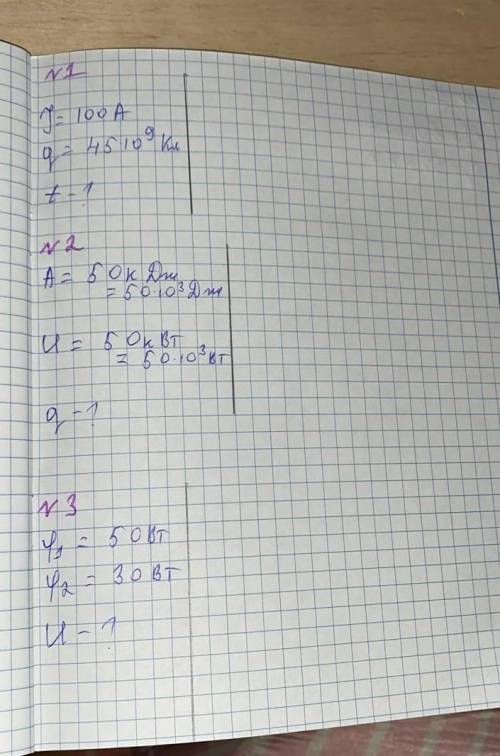 №1
J = 100 A
q = 45·10⁹ Кл
t - ?
№2
A = 50 кДж
= 50·10³ Дж
U = 50 кВт
= 50·10³ Вт
q - ?
№3
φ₁ = 50 Вт
φ₂ = 30 Вт
U - ?